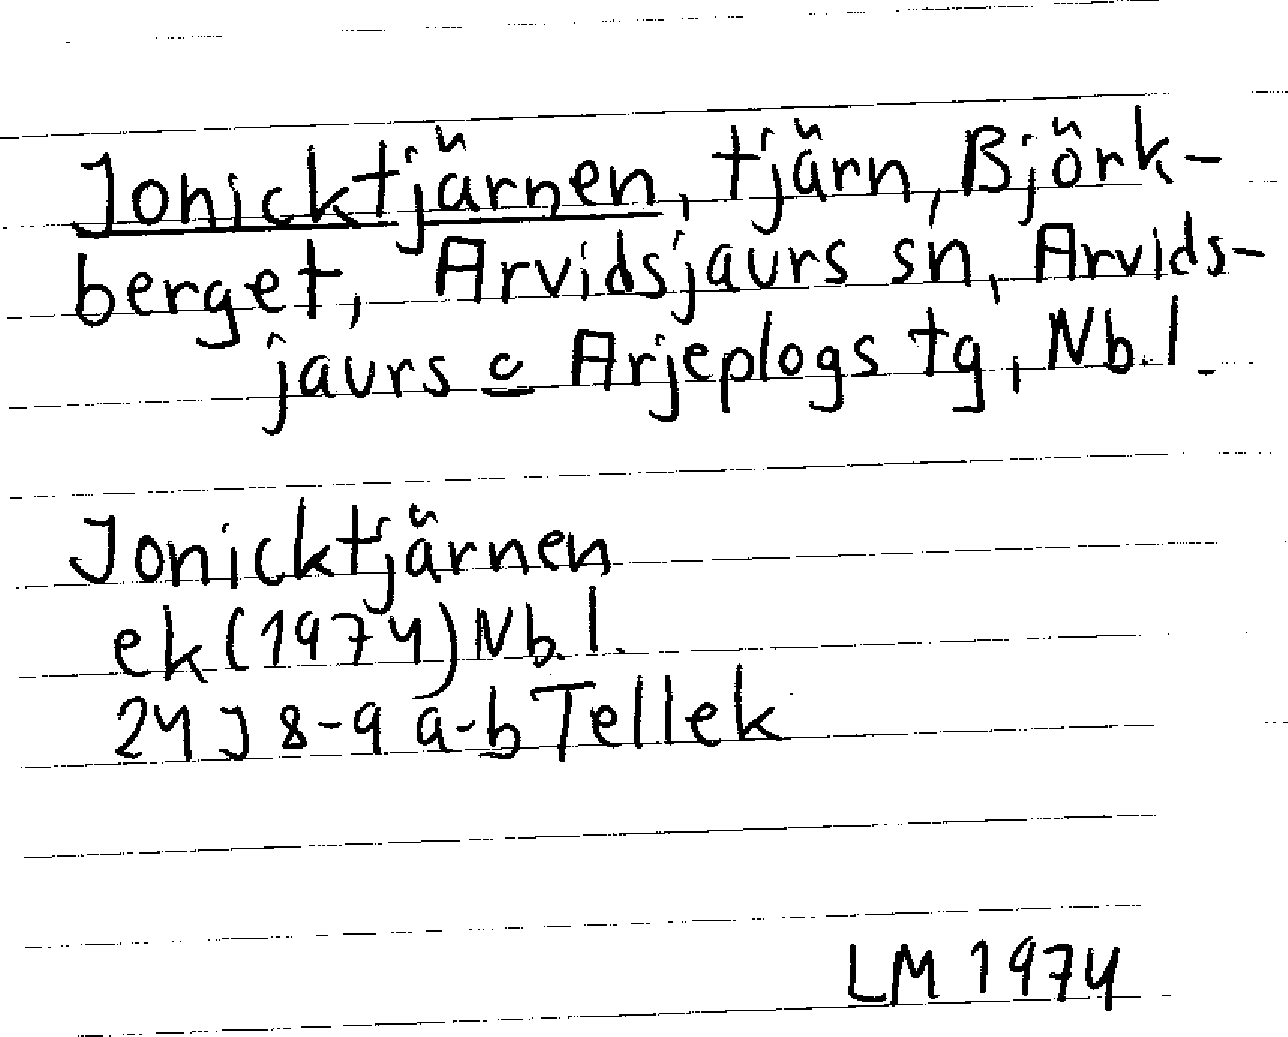 Jonicktjärnen, tjärn, Björk-
berget, Arvidsjaurs sn, Arvids-
jaurs o Arjeplogs tg, Nb.l.
Jonicktjärnen
ek (1974) Nb.l.
24J 8-9 a-b Tellek
LM 1974